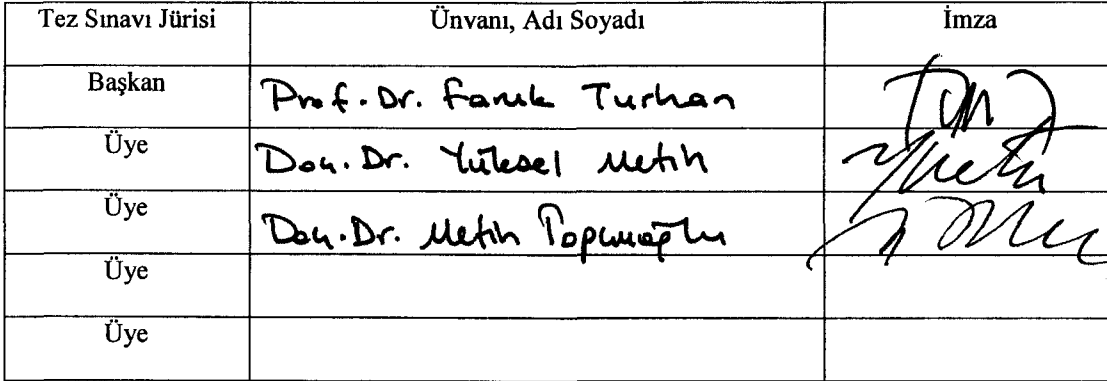 Tez Sınavı Jürisi Ünvanı, Adı Soyadı İmza
Başkan Prof. Dr. Faruk Turhan
Üye Doç. Dr. Yüksel Metin
Üye Doç. Dr. Metin Topçuoğlu
Üye
Üye